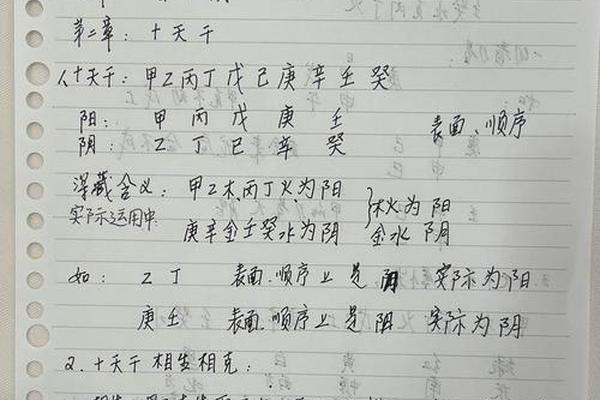 第二章：十天干
1、十天干：甲乙丙丁戊己庚辛壬癸
阳：甲丙戊庚壬 表面、顺序
阴：乙丁己辛癸
深藏含义：甲乙木、丙丁火为阳 } 木火为阳
实际运用中 庚辛金壬癸水为阴 金水 阴
如：乙丁 表面.顺序上是阴 实际为阳
庚壬 表面.顺序上是阳 实际为阴
2.十天干相生相克：